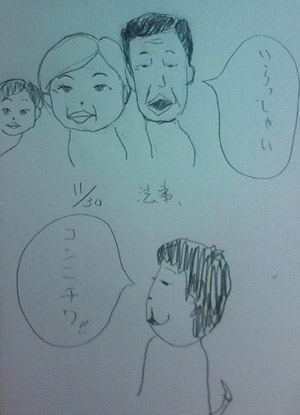 いらっしゃい
11/30 法事、
コンニチワ!!